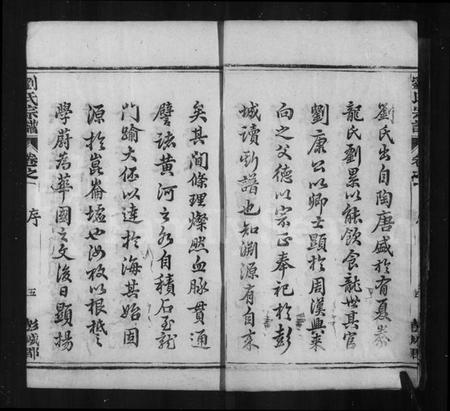 劉氏出自陶唐盛於有夏豢
龍氏劉累以能飲食龍世其官
劉康公以卿士顯於周漢興來
向之父德以宗正奉祀於彭
城讀斯譜也知淵源有自來
矣其間條理燦然血脉貫通
譬諸黃河之水自積石至龍
門踰大伾以達於海其始固
源於崑崙墟也汝枚以根柢之
學蔚為華國之文後日顯揚
劉氏宗譜
卷之一
序
五
彭城郡